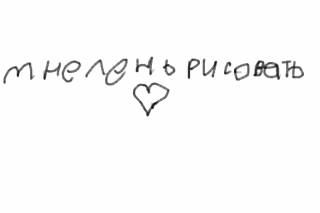 мне лень рисовать